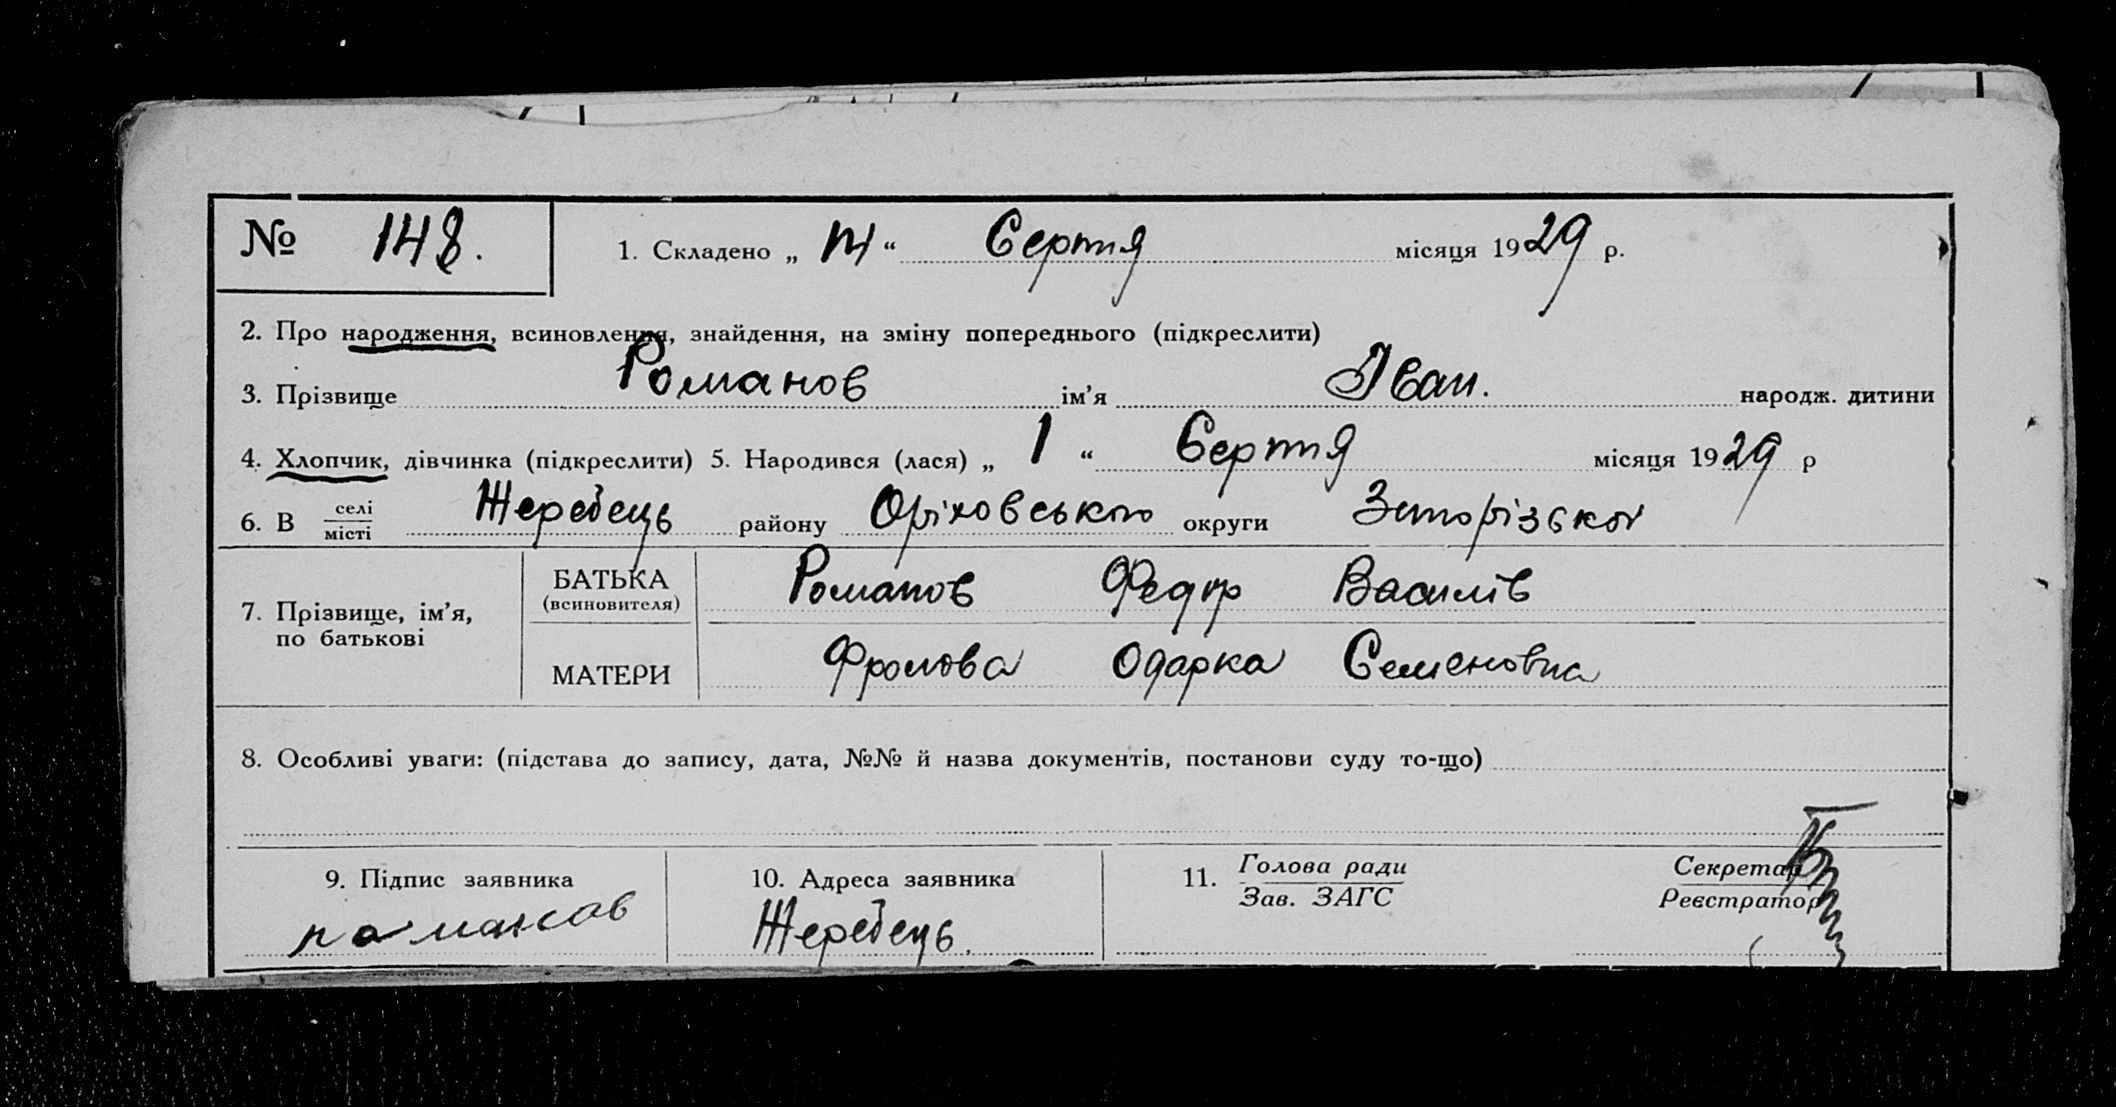 № 148. 1. Складено „ “ Серпня місяця 1929 р.
2. Про народження, всиновлення, знайдення, на зміну попереднього (підкреслити)
3. Прізвище Романов ім’я Іван. народж. дитини
4. Хлопчик, дівчинка (підкреслити) 5. Народився (лася) „ 1 “ Серпня місяця 1929 р
6. В селі Жеребець району Оріховського округи Запорізької
місті
7. Прізвище, ім’я, по батькові
БАТЬКА (всиновителя) Романов Федір Василів
МАТЕРИ Фролова Одарка Семеновна
8. Особливі уваги: (підстава до запису, дата, №№ й назва документів, постанови суду то-що)
9. Підпис заявника 10. Адреса заявника 11. Голова ради Секретар
Зав. ЗАГС Реєстратор
романов Жеребець.